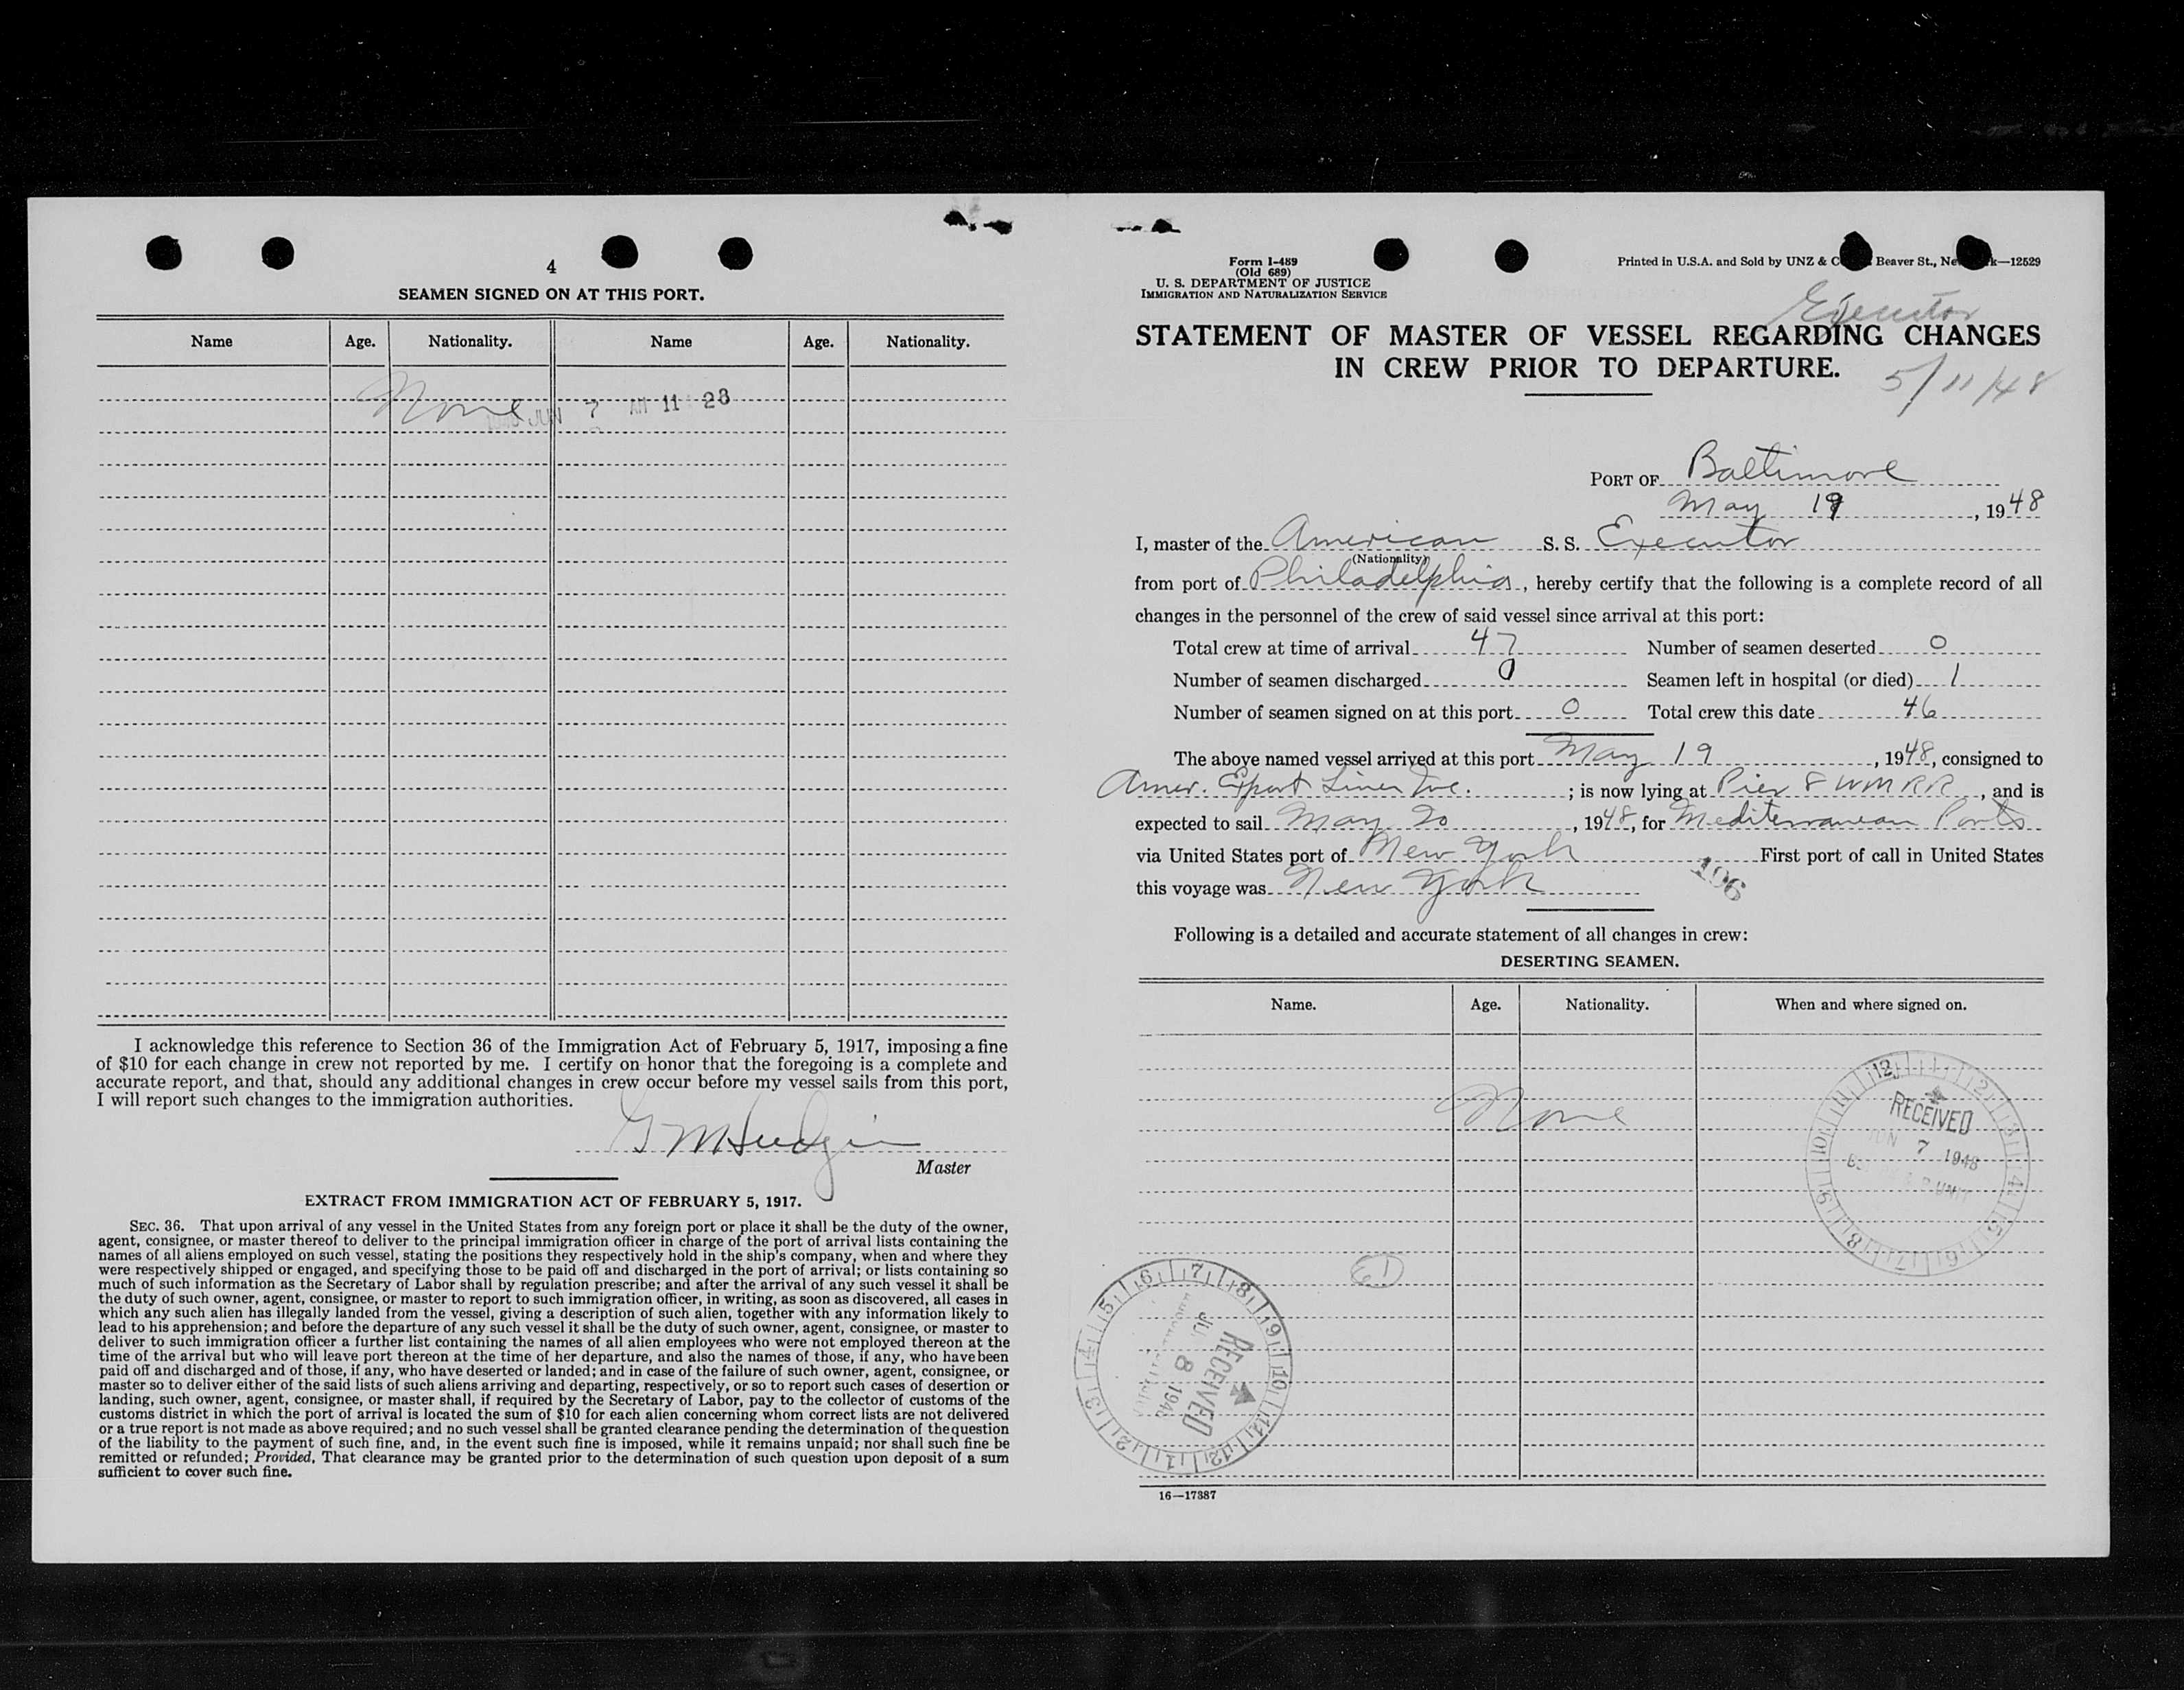 4
SEAMEN SIGNED ON AT THIS PORT.
Name Age. Nationality. Name Age. Nationality.
None
JUN 7 AM 11 28
I acknowledge this reference to Section 36 of the Immigration Act of February 5, 1917, imposing a fine
of $10 for each change in crew not reported by me. I certify on honor that the foregoing is a complete and
accurate report, and that, should any additional changes in crew occur before my vessel sails from this port,
I will report such changes to the immigration authorities.
G M Hudgin
Master
EXTRACT FROM IMMIGRATION ACT OF FEBRUARY 5, 1917.
SEC. 36. That upon arrival of any vessel in the United States from any foreign port or place it shall be the duty of the owner,
agent, consignee, or master thereof to deliver to the principal immigration officer in charge of the port of arrival lists containing the
names of all aliens employed on such vessel, stating the positions they respectively hold in the ship's company, when and where they
were respectively shipped or engaged, and specifying those to be paid off and discharged in the port of arrival; or lists containing so
much of such information as the Secretary of Labor shall by regulation prescribe; and after the arrival of any such vessel it shall be
the duty of such owner, agent, consignee, or master to report to such immigration officer, in writing, as soon as discovered, all cases in
which any such alien has illegally landed from the vessel, giving a description of such alien, together with any information likely to
lead to his apprehension; and before the departure of any such vessel it shall be the duty of such owner, agent, consignee, or master to
deliver to such immigration officer a further list containing the names of all alien employees who were not employed thereon at the
time of the arrival but who will leave port thereon at the time of her departure, and also the names of those, if any, who have been
paid off and discharged and of those, if any, who have deserted or landed; and in case of the failure of such owner, agent, consignee, or
master so to deliver either of the said lists of such aliens arriving and departing, respectively, or so to report such cases of desertion or
landing, such owner, agent, consignee, or master shall, if required by the Secretary of Labor, pay to the collector of customs of the
customs district in which the port of arrival is located the sum of $10 for each alien concerning whom correct lists are not delivered
or a true report is not made as above required; and no such vessel shall be granted clearance pending the determination of the question
of the liability to the payment of such fine, and, in the event such fine is imposed, while it remains unpaid; nor shall such fine be
remitted or refunded; Provided, That clearance may be granted prior to the determination of such question upon deposit of a sum
sufficient to cover such fine.
Form I-489
(Old 689)
U. S. DEPARTMENT OF JUSTICE
IMMIGRATION AND NATURALIZATION SERVICE
Printed in U.S.A. and Sold by UNZ & Beaver St., —12529
Executor
STATEMENT OF MASTER OF VESSEL REGARDING CHANGES
IN CREW PRIOR TO DEPARTURE.
5/11/48
PORT OF Baltimore
May 19, 1948
I, master of the American S. S. Executor
(Nationality)
from port of Philadelphia, hereby certify that the following is a complete record of all
changes in the personnel of the crew of said vessel since arrival at this port:
Total crew at time of arrival 47 Number of seamen deserted 0
Number of seamen discharged 0 Seamen left in hospital (or died) 1
Number of seamen signed on at this port 0 Total crew this date 46
The above named vessel arrived at this port May 19, 1948, consigned to
Amer. Export Lines Inc. ; is now lying at Pier 8 WMRR, and is
expected to sail May 20, 1948, for Mediterranean Ports
via United States port of New York First port of call in United States
this voyage was New York
196
Following is a detailed and accurate statement of all changes in crew:
DESERTING SEAMEN.
Name. Age. Nationality. When and where signed on.
None
12 1 2 3 4 5 6 7 8 9 10 11
RECEIVED
JUN 7 1948
UNIT
61
6 7 8 9 10 11 12 1 2 3 4 5
RECEIVED
8 1948
16—17387